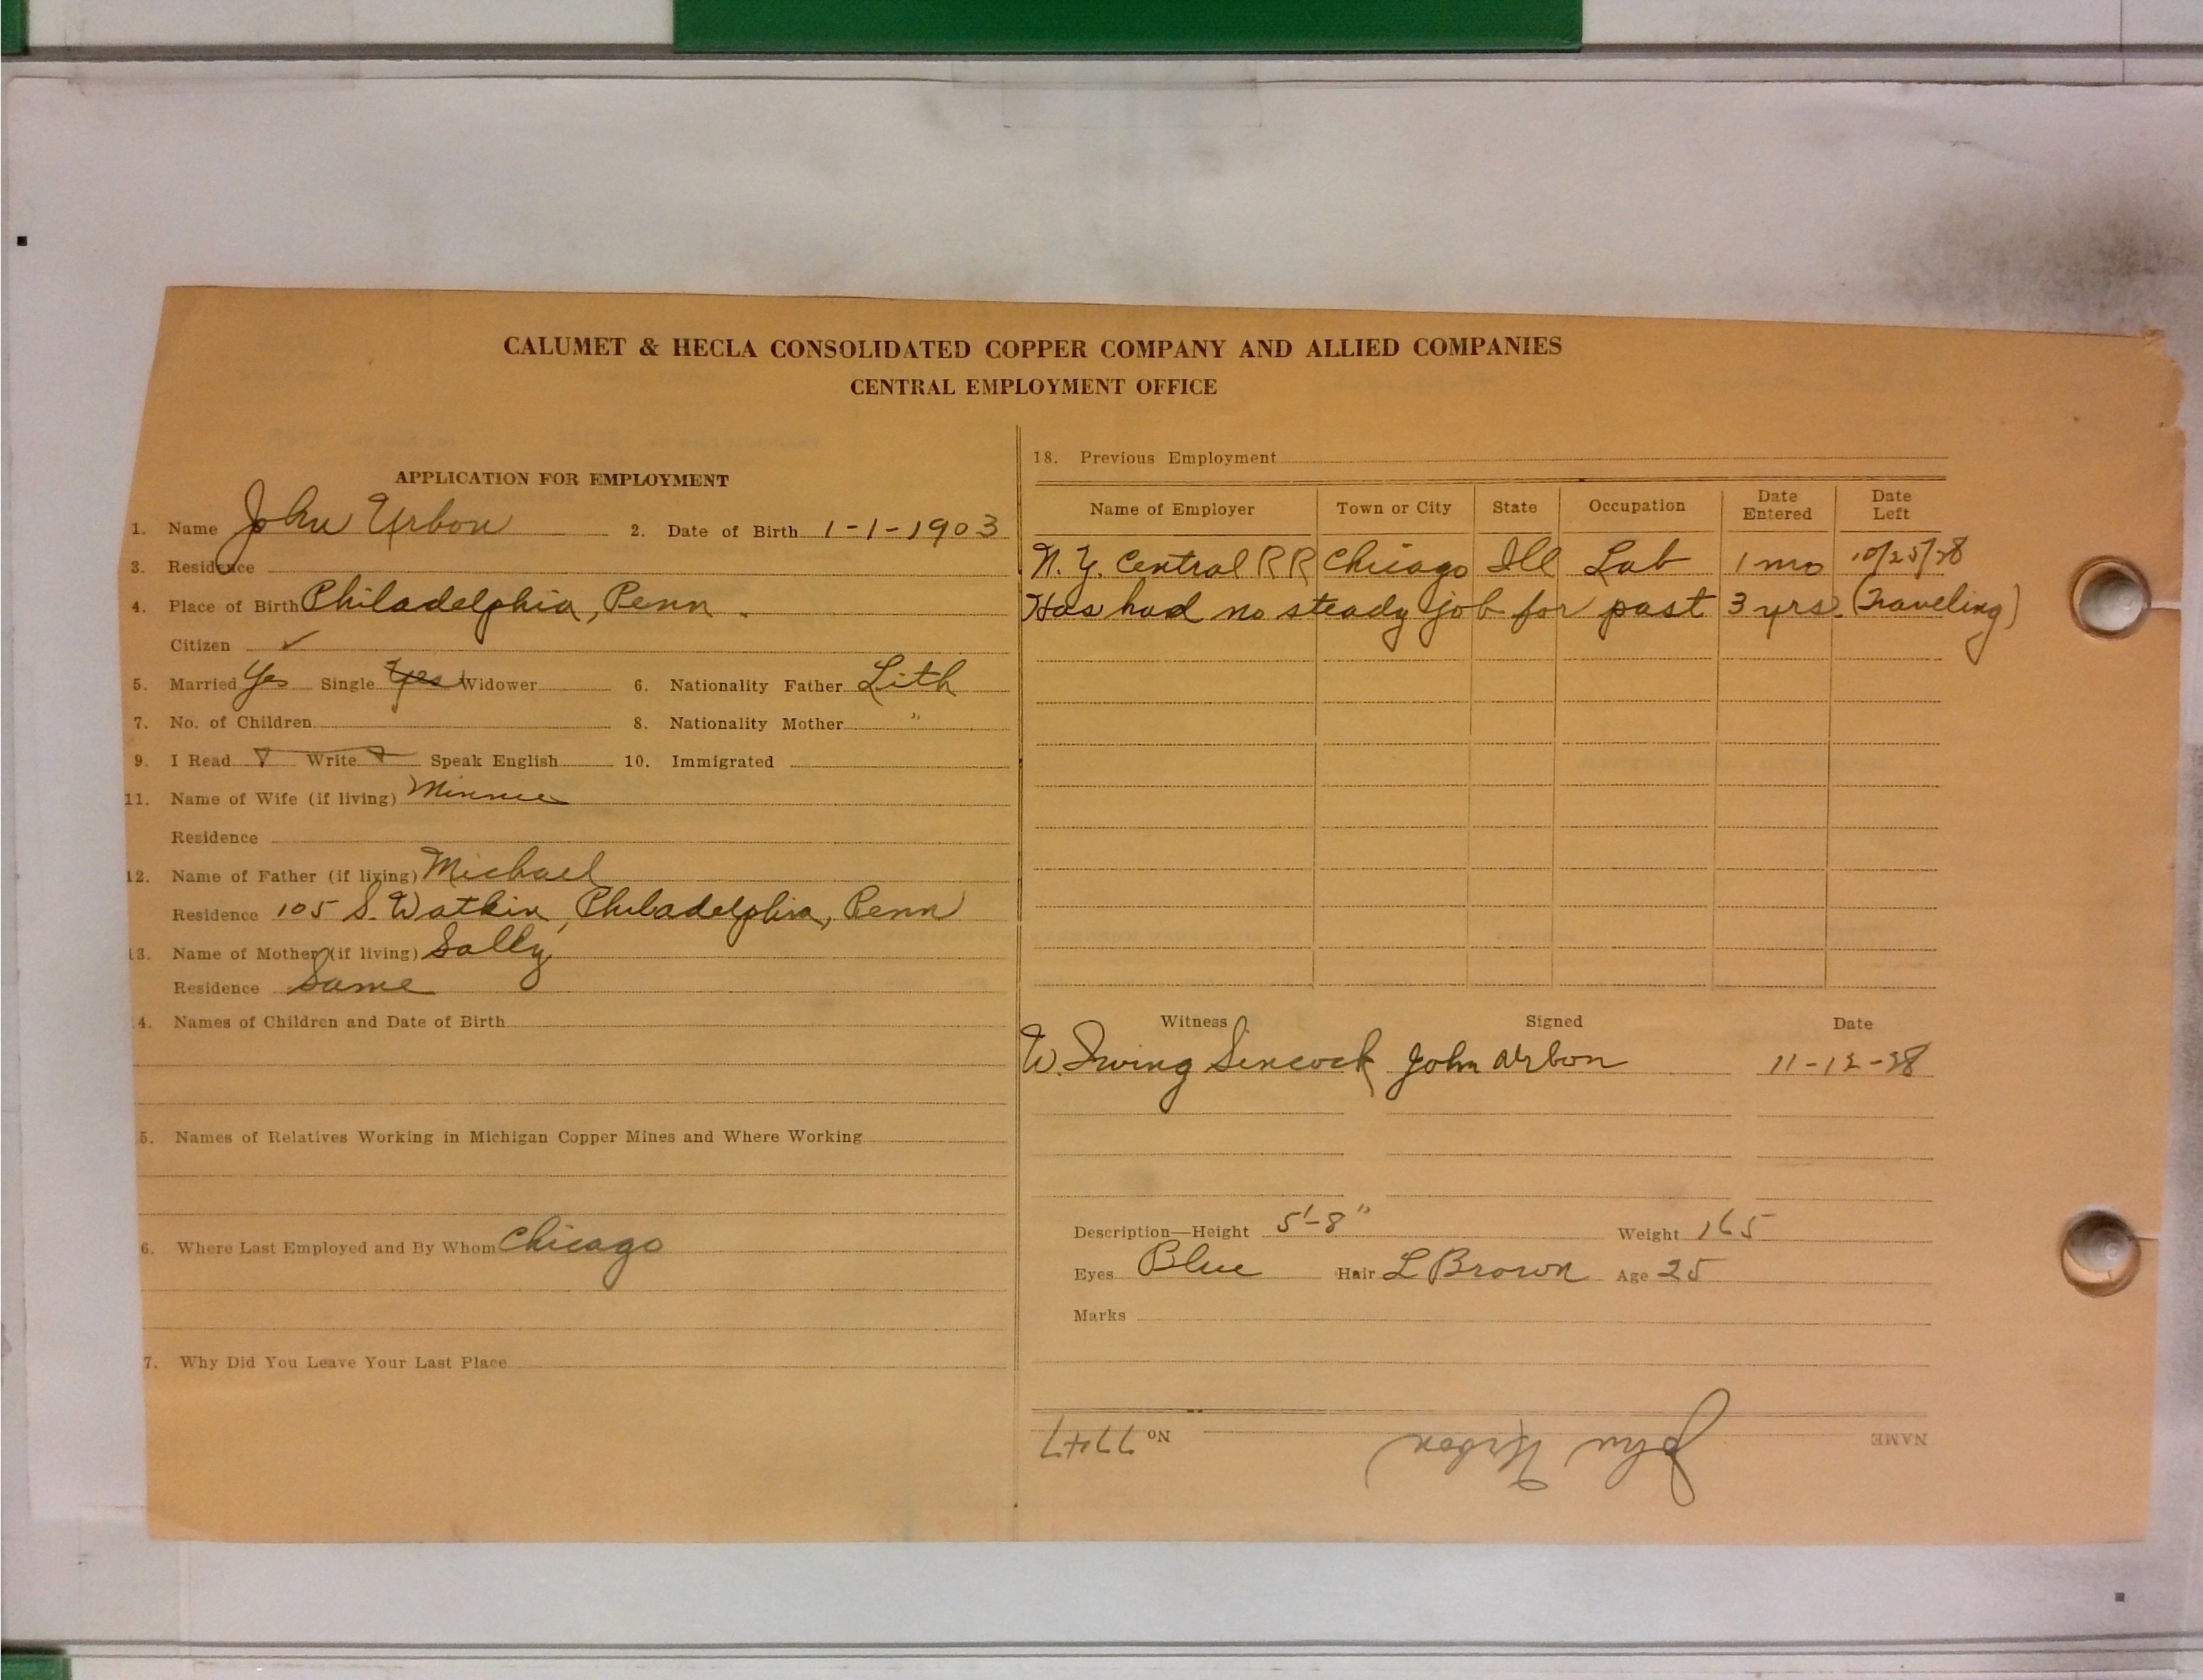 CALUMET & HECLA CONSOLIDATED COPPER COMPANY AND ALLIED COMPANIES
CENTRAL EMPLOYMENT OFFICE
APPLICATION FOR EMPLOYMENT
1. Name John Urbon 2. Date of Birth 1-1-1903
3. Residence
4. Place of Birth Philadelphia, Penn.
Citizen ✓
5. Married Yes Single Yes Widower 6. Nationality Father Lith
7. No. of Children 8. Nationality Mother "
9. I Read Write Speak English 10. Immigrated
11. Name of Wife (if living) Minnie
Residence
12. Name of Father (if living) Michael
Residence 105 S. Watkin, Philadelphia, Penn
13. Name of Mother (if living) Sally
Residence Same
4. Names of Children and Date of Birth
5. Names of Relatives Working in Michigan Copper Mines and Where Working
6. Where Last Employed and By Whom Chicago
7. Why Did You Leave Your Last Place
18. Previous Employment
Name of Employer Town or City State Occupation Date Entered Date Left
N. Y. Central RR Chicago Ill Lab 1 mo 10/25/28
Has had no steady job for past 3 yrs. (Traveling)
Witness Signed Date
W. Irving Sincock John Urbon 11-12-28
Description—Height 5'-8" Weight 165
Eyes Blue Hair L Brown Age 25
Marks
NAME John Urbon No. 7747